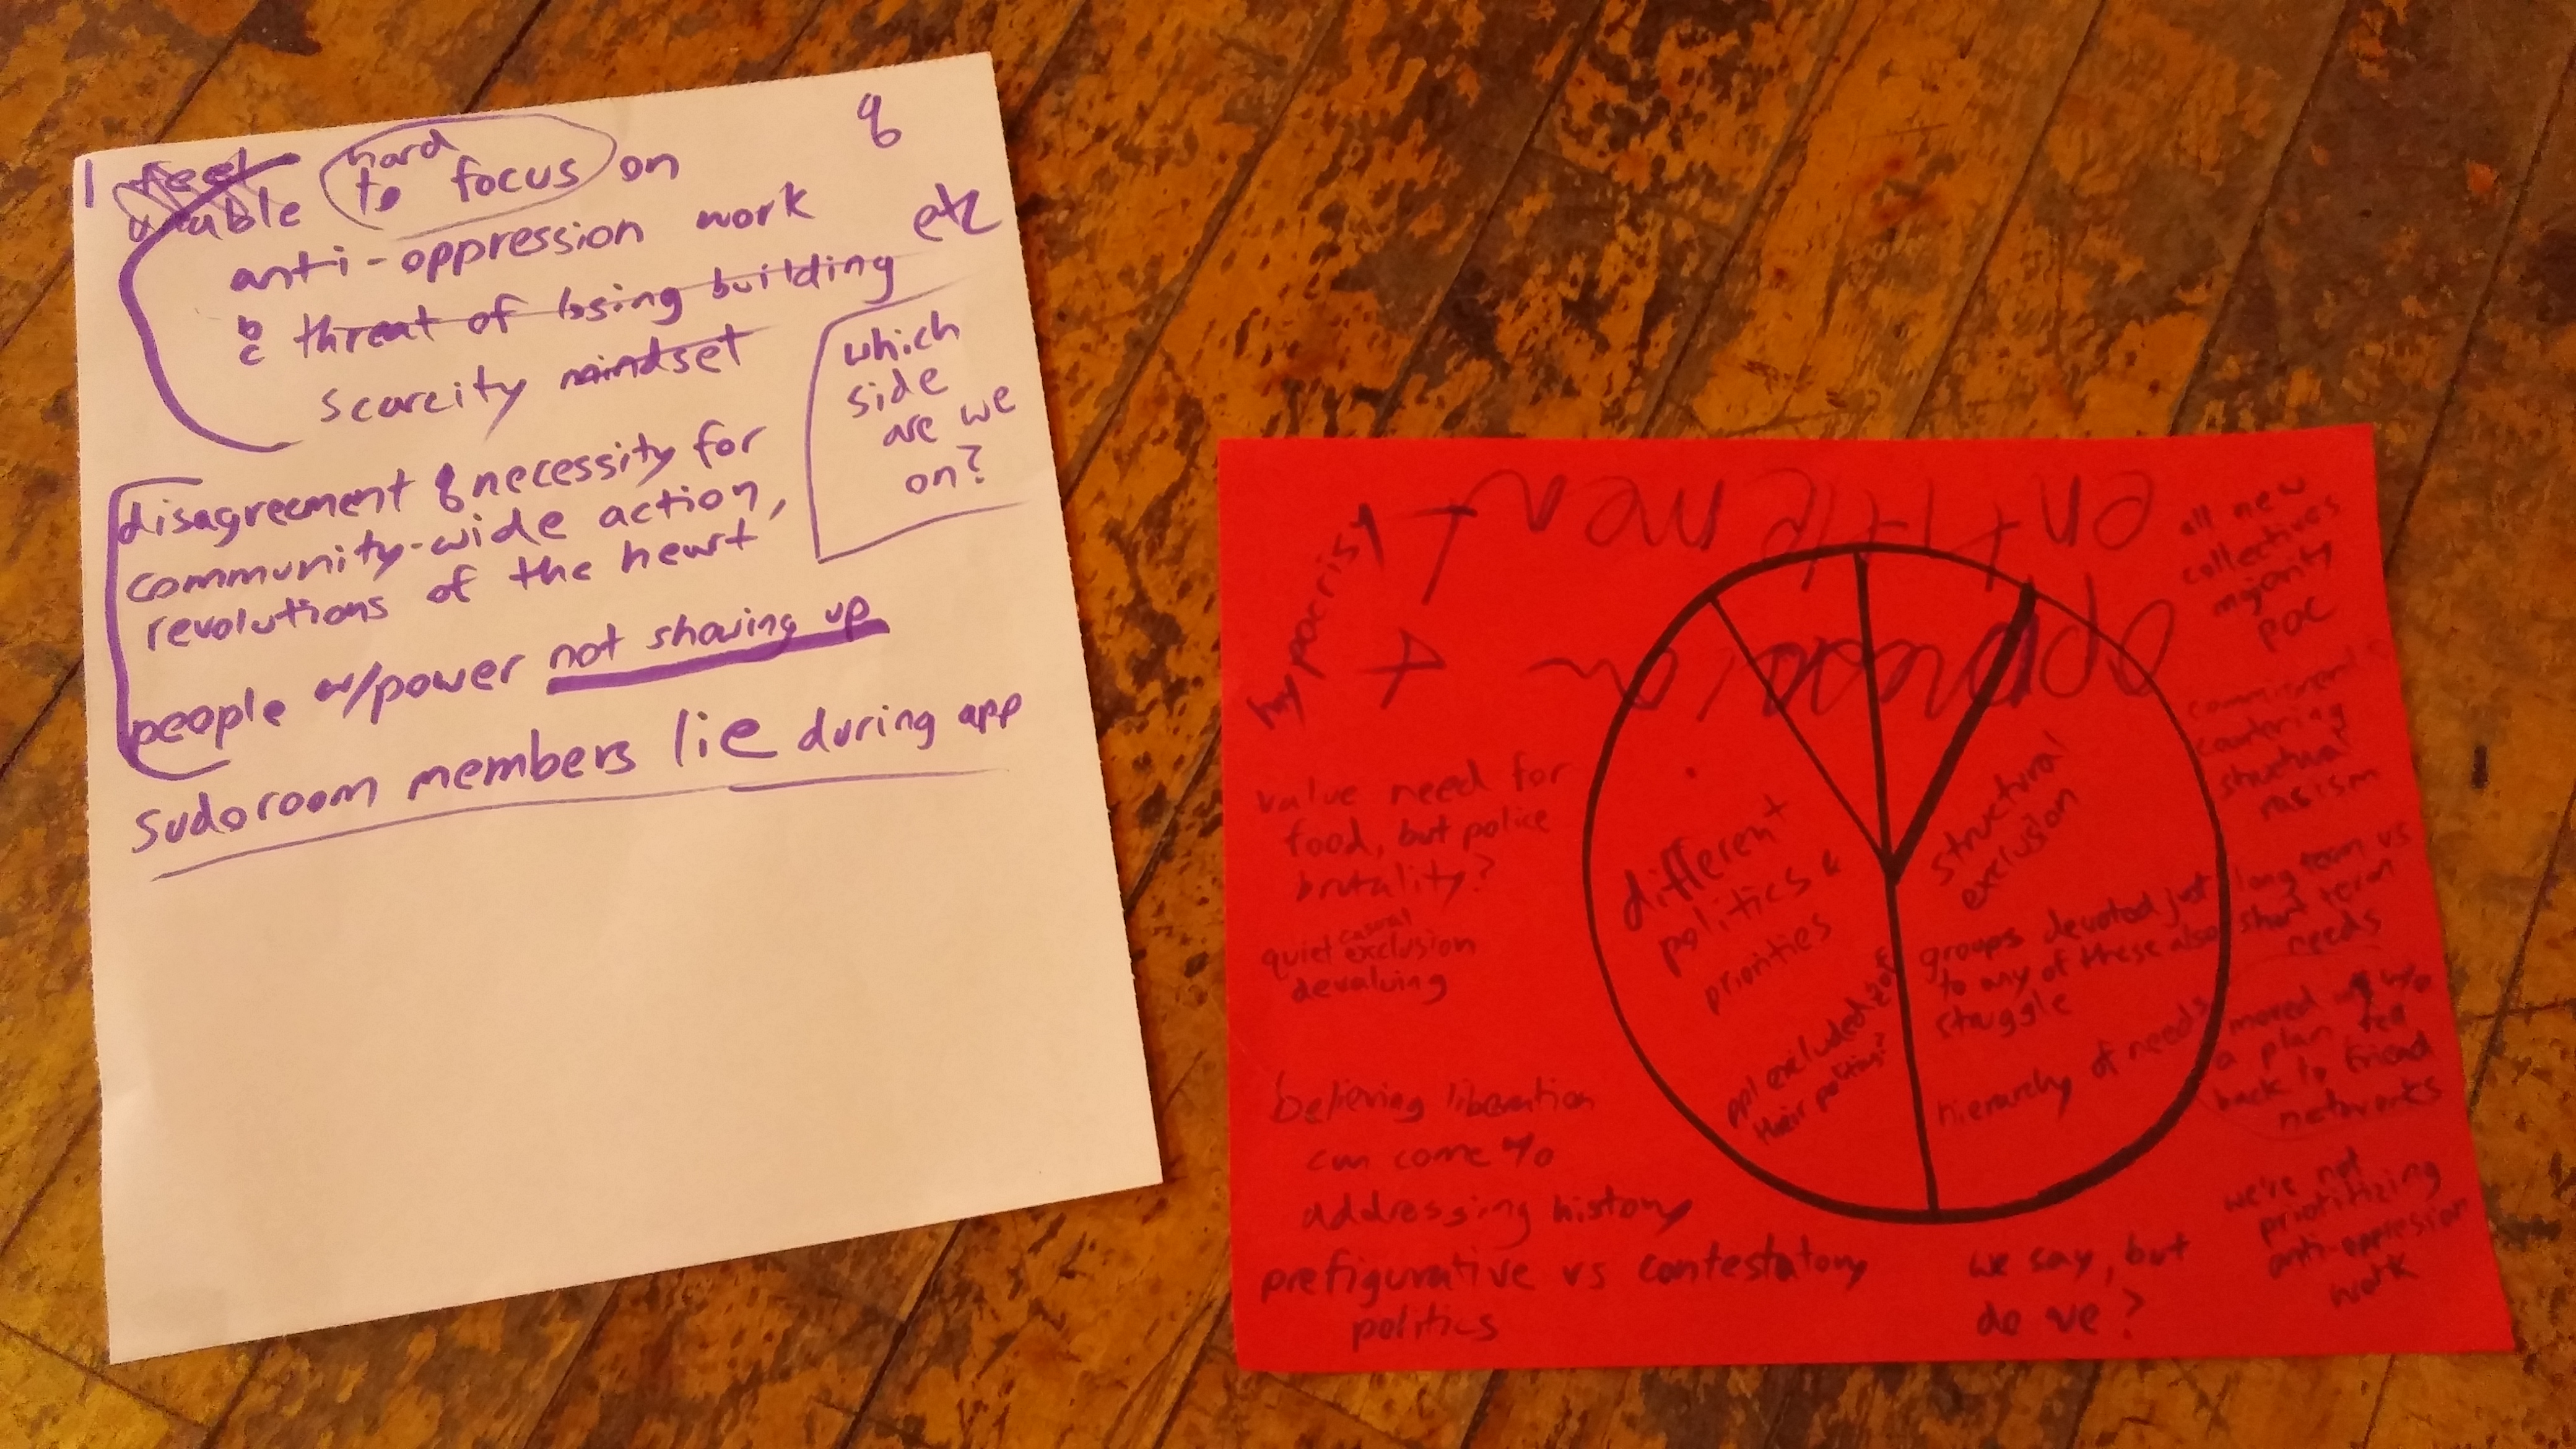 I feel
unable hard to focus on
&
anti-oppression work
etc
bc threat of losing building
scarcity mindset
which
side
are we
on?
disagreement & necessity for
community-wide action,
revolutions of the heart
people w/power not showing up
sudoroom members lie during app
entitlement
oppression
hypocrisy
all new
collectives
majority
POC
commitment
countering
structural
racism
value need for
food, but police
brutality?
quiet casual exclusion
devaluing
different
politics &
priorities
structural
exclusion
ppl excluded
their politics?
groups devoted just
to any of these also
struggle
hierarchy of needs
long term vs
short term
needs
moved w/o
a plan
back to friend
networks
believing liberation
can come w/o
addressing history
prefigurative vs contestatory
politics
we say, but
do we?
we're not
prioritizing
anti-oppression
work